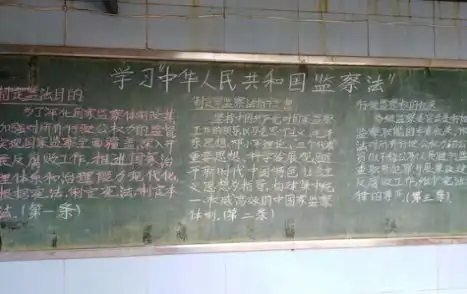 学习"中华人民共和国监察法"
制定监法目的
为了深化国家监察体制改革
加强对所有行使公权力的监督
实现国家监察全面覆盖，深入开
展反腐败工作，推进国家治
理体系和治理能力现代化，
根据宪法，制定本
法。(第一条)
坚持中国共产党对国家监察
工作的领导，以马克思列宁主义、毛泽
东思想、邓小平理论、"三个代表"
重要思想、科学发展观、习近
平新时代中国特色社会主
义思想为指导，构建集中统
一、权威高效的中国国家监察
体制。(第二条)
行使监察权的机关
各级监察委员会是行使国家
监察职能的专责机关，依照本
法对所有行使公权力的公
职人员进行监
查职务犯罪，开展廉政建
反腐败工作，维护宪法和法
律的尊严。(第三条)